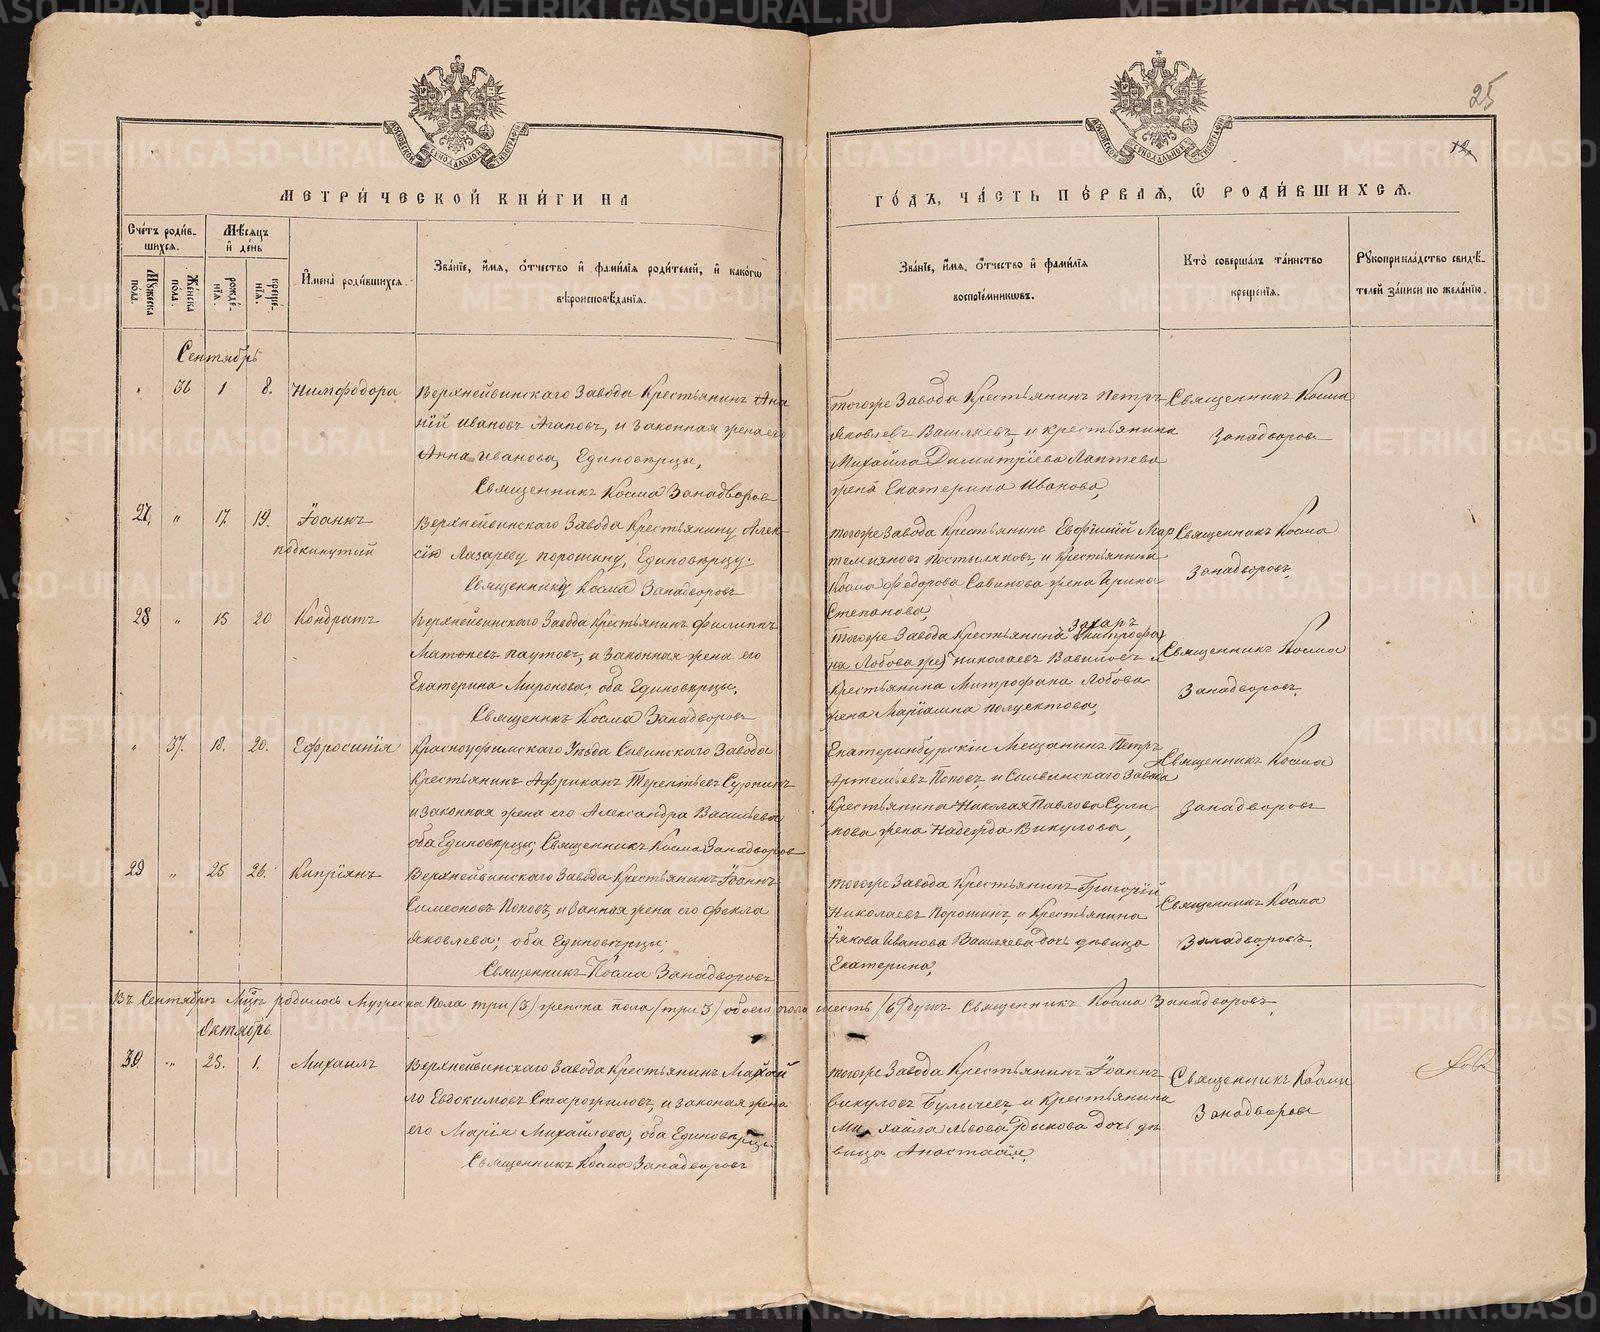 25
12
МОСКОВСКОЙ СѴНОДАЛЬНОЙ ТИПОГРАФІИ
МОСКОВСКОЙ СѴНОДАЛЬНОЙ ТИПОГРАФІИ
МЕТРИ́ЧЕСКОЙ КНИ́ГИ НА
ГО́ДЪ, ЧА́СТЬ ПЕ́РВАЯ, Ѡ҆ РОДИ́ВШИХСЯ.
Сче́тъ роди́в-
шихся.
Мѣ́сяцъ
и҆ де́нь
Мꙋ́жеска
по́ла.
Же́нска
по́ла.
рожде́-
нїя.
креще́-
нїя.
И҆мена̀ роди́вшихся.
Зва́нїе, и҆́мя, ѻ҆́тчество и҆ фами́лїя роди́телей, и҆ како́гѡ
вѣроисповѣ́данїя.
Зва́нїе, и҆́мя, ѻ҆́тчество и҆ фами́лїя
воспрїе́мниковъ.
Кто̀ соверша́лъ та́инство
креще́нїя.
Рꙋкоприкла́дство свидѣ́-
телей за́писи по жела́нїю.
Сентябрь
" 36 1 8. Нимфодора
Верхнейвинскаго Завода Крестьянинъ Ана
ній Ивановъ Агаповъ, и законная жена его
Анна Иванова, Единовѣрцы,
Священникъ Косма Западворовъ
тогоже Завода Крестьянинъ Петръ
Яковлевъ Вашляевъ, и крестьянина
Михайла Димитріева Лаптева
жена Екатерина Иванова,
Священникъ Косма
Западворовъ
27, " 17 19. Іоаннъ
подкинутый
Верхнейвинскаго Завода Крестьянину Алек-
сію Лазареву Порошину, Единовѣрцу.
Священникъ Косма Западворовъ
тогоже завода Крестьянинъ Евфимій Мар
темиановъ Постыляковъ, и Крестьянина
Косма Федорова Савинова жена Ирина
Степанова,
Священникъ Косма
Западворовъ,
28 " 15 20 Кондратъ
Верхнейвинскаго Завода Крестьянинъ Филиппъ
Паутовъ, и Законная жена его
Екатерина Миронова, оба Единовѣрцы,
Священникъ Косма Западворовъ
Захаръ
тогоже Завода Крестьянина Митрофа
на Лобова же Николаевъ Вавиловъ и
Крестьянина Митрофана Лобова
жена Маріамна Полуектова,
Священникъ Косма
Западворовъ.
" 37. 18. 20. Ефросинія
Красноуфимскаго Уѣзда Сывинскаго Завода
Крестьянинъ Африканъ Терентьевъ
и законная жена его Александра Васильева
оба Единовѣрцы; Священникъ Косма Западворовъ
Екатеринбурскій Мещанинъ Петръ
Артемьевъ Поповъ, и Сылвинскаго Завода
Крестьянина Николая Павлова Сули
нова жена Надежда Викулова,
Священникъ Косма
Западворовъ
29 " 25 26. Кипріянъ
Верхнейвинскаго Завода Крестьянинъ Іоаннъ
Симеоновъ Поповъ, и Занная жена его Фекла
Яковлева; оба Единовѣрцы;
Священникъ Косма Западворовъ
тогоже Завода Крестьянинъ Григорій
Николаевъ Порошинъ, и Крестьянина
Іякова Иванова Вашляева дочь дѣвица
Екатерина,
Священникъ Косма
Западворовъ.
Въ Сентябрѣ Мцѣ родилось Мужеска Пола три /3/ женска пола /три 3/ обоего пола шесть /6/ душъ Священникъ Косма Западворовъ,
Октябрь
30 " 25. 1. Михаилъ
Верхнейвинскаго Завода Крестьянинъ Михай
ло Евдокимовъ Старожиловъ, и законая жена
его Марія Михайлова, оба Единовѣрцы
Священникъ Косма Западворовъ
тогоже Завода Крестьянинъ Іоаннъ
Викуловъ Булычевъ, и Крестьянина
Михаила Львова Рыкова дочь дѣ
вица Анастасія,
Священникъ Косма
Западворовъ
METRIKI.GASO-URAL.RU